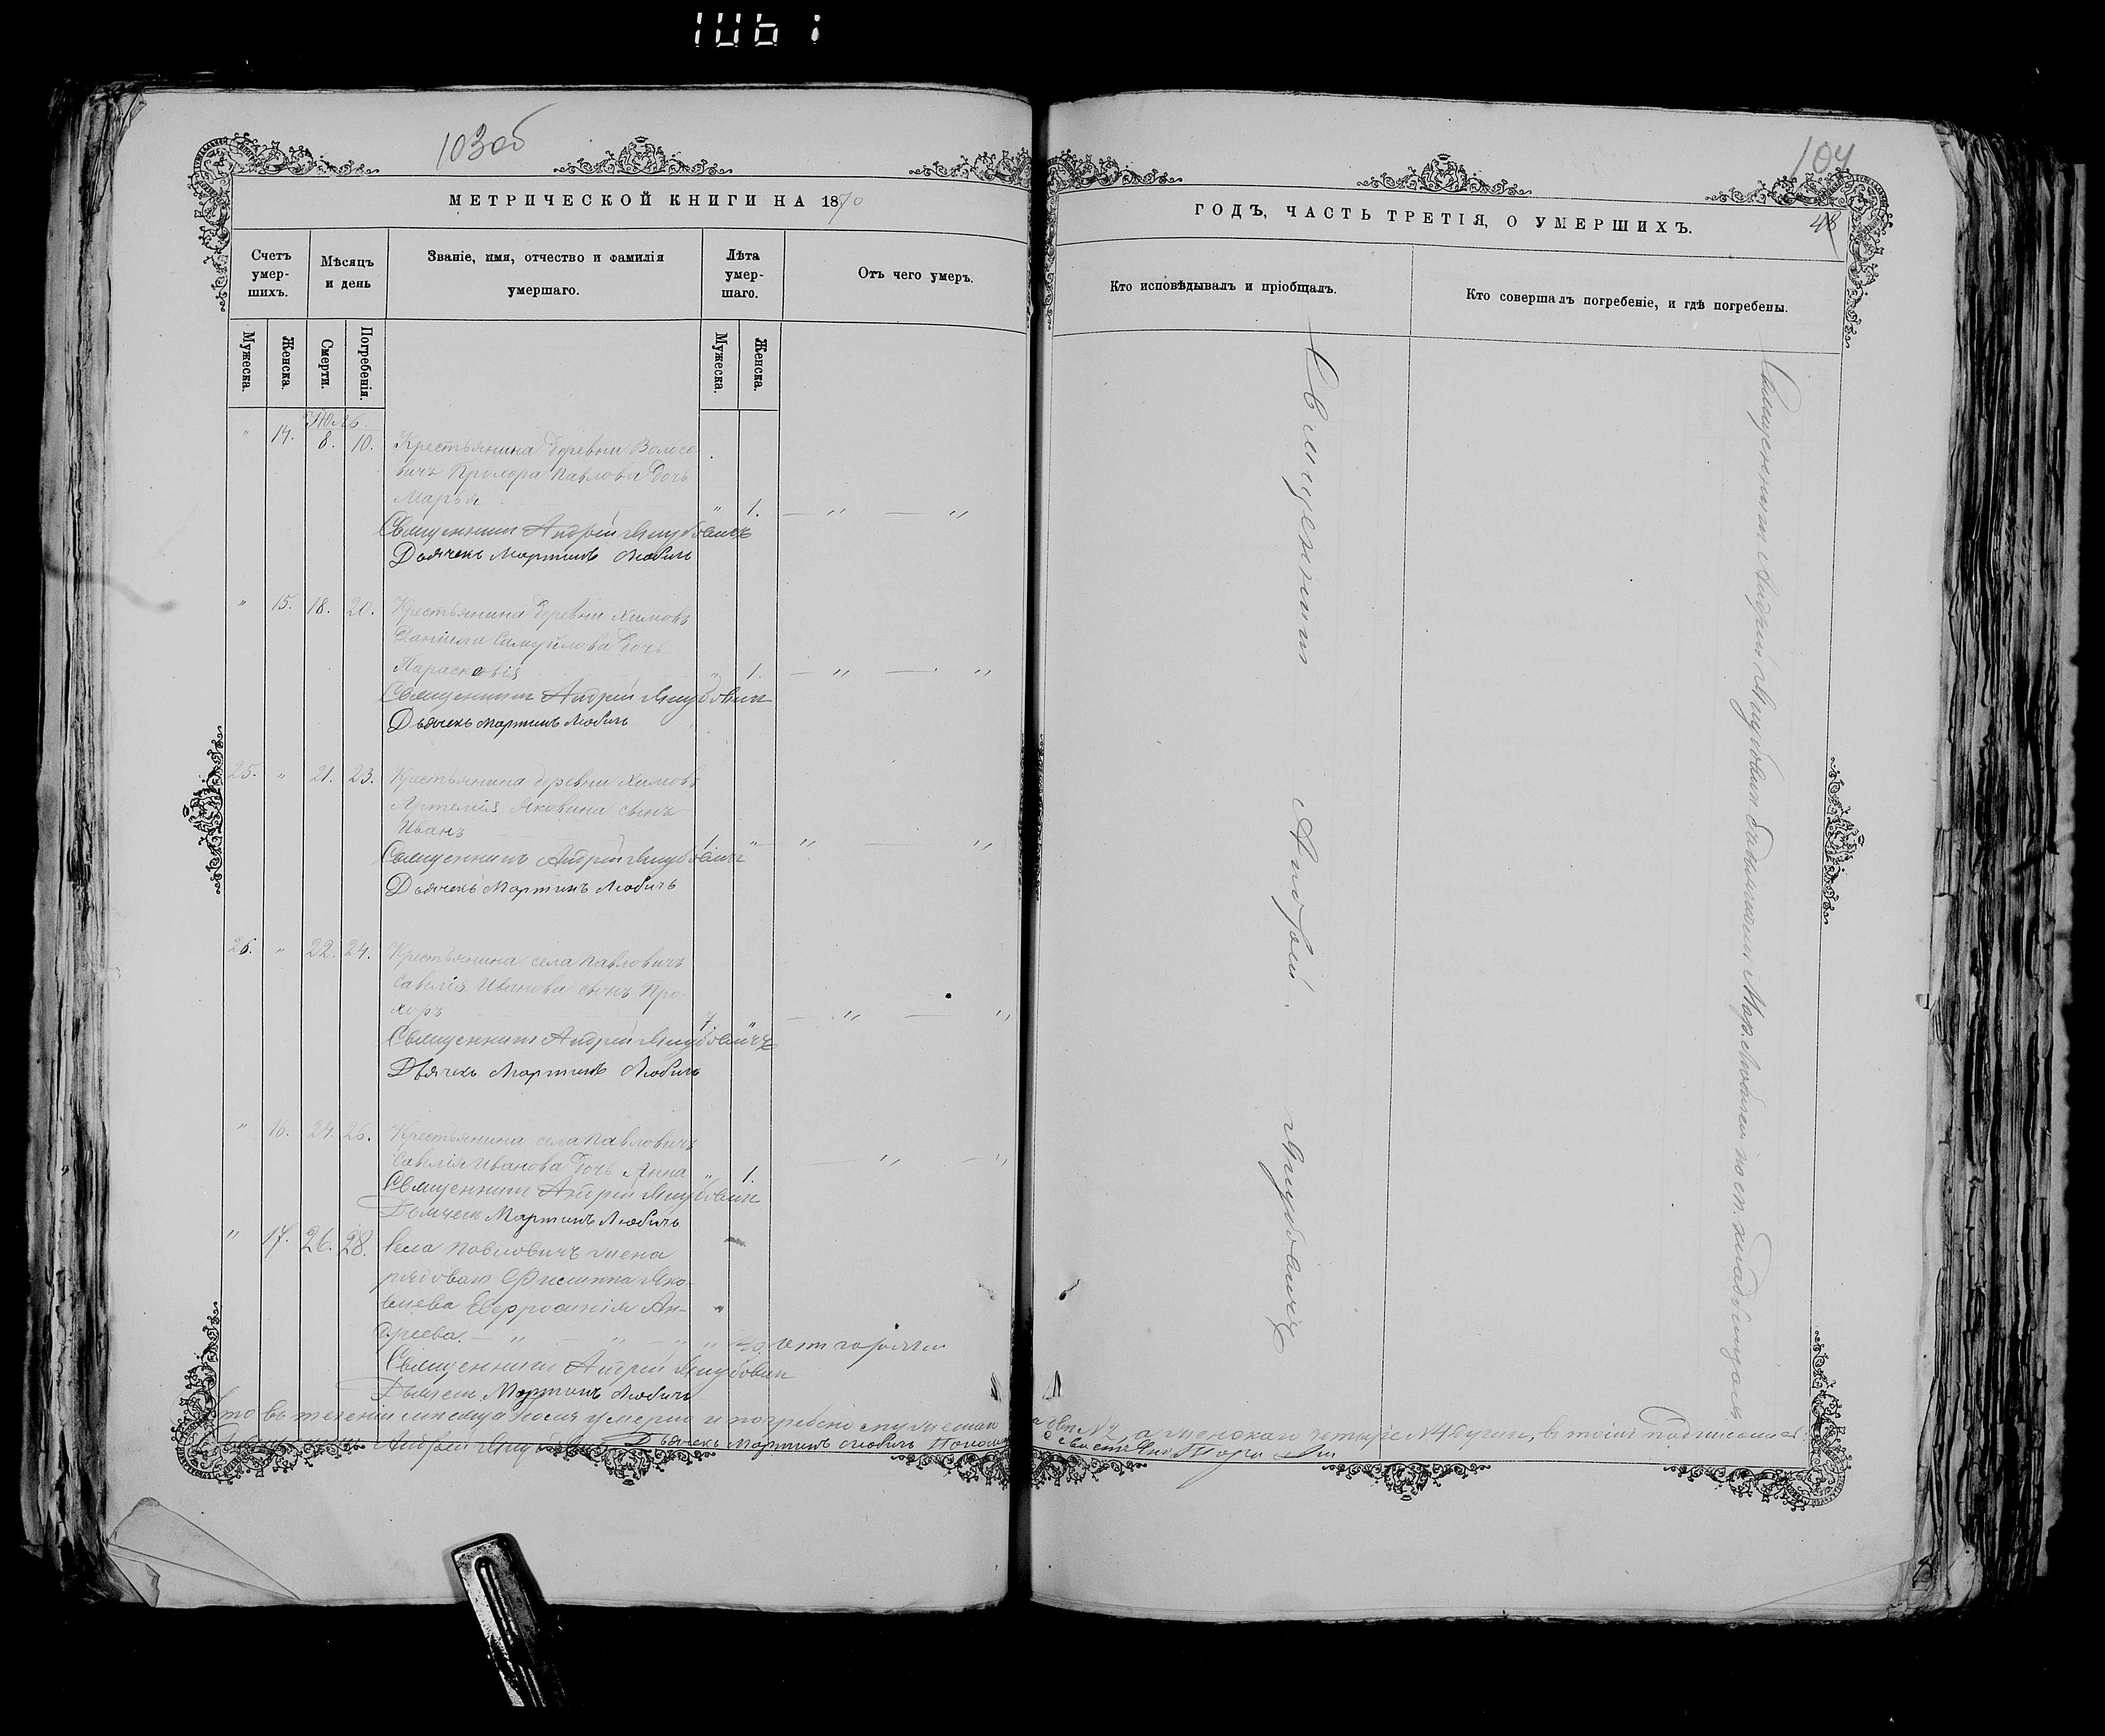 103об
МЕТРИЧЕСКОЙ КНИГИ НА 1870
Счетъ умер-шихъ.
Мѣсяцъ и день
Званіе, имя, отчество и фамилія умершаго.
Лѣта умер-шаго.
Отъ чего умеръ.
Мужеска.
Женска.
Смерти.
Погребенія.
Мужеска.
Женска.
Юль
" 14. 8. 10. Крестьянина деревни Волосо
вичъ Прохора Павлова дочь
Марья " 1. — " — "
Священникъ Андрей Якубовичъ
Дьячекъ Мартинъ Любичъ
" 15. 18. 20. Крестьянина деревни Химовъ
Даніила Самуйлова дочь
Парасковія " 1. — " — "
Священникъ Андрей Якубовичъ
Дьячекъ Мартинъ Любичъ
25. " 21. 23. Крестьянина деревни Химовъ
Артемія Яковина сынъ
Иванъ 1. " — " — "
Священникъ Андрей Якубовичъ
Дьячекъ Мартинъ Любичъ
26. " 22. 24. Крестьянина села Павловичъ
Савелія Иванова сынъ Про-
хоръ " — " — "
Священникъ Андрей Якубовичъ
Дьячекъ Мартинъ Любичъ
" 16. 24. 26. Крестьянина села Павловичъ
Савелія Иванова дочь Анна " 1. — " — "
Священникъ Андрей Якубовичъ
Дьячекъ Мартинъ Любичъ
" 17. 26. 28. Села Павловичъ жена
рядоваго Филиппа Яко-
влева Евфросинія Ан-
дреева. — " — " — " " 30. отъ горячки
Священникъ Андрей Якубовичъ
Дьячекъ Мартинъ Любичъ
Что въ теченіи мѣсяца Юля умерло и погребено мужескаго
Андрей Якубовичъ Дьячекъ Мартинъ Любичъ
104
48
ГОДЪ, ЧАСТЬ ТРЕТІЯ, О УМЕРШИХЪ.
Кто исповѣдывалъ и пріобщалъ.
Кто совершалъ погребеніе, и гдѣ погребены.
Священникъ Андрей Якубовичъ
Священникъ Андрей Якубовичъ съ дьячкомъ Мар. Любичемъ на кладбищѣ
а женскаго четыре №4 души, въ томъ подписомся